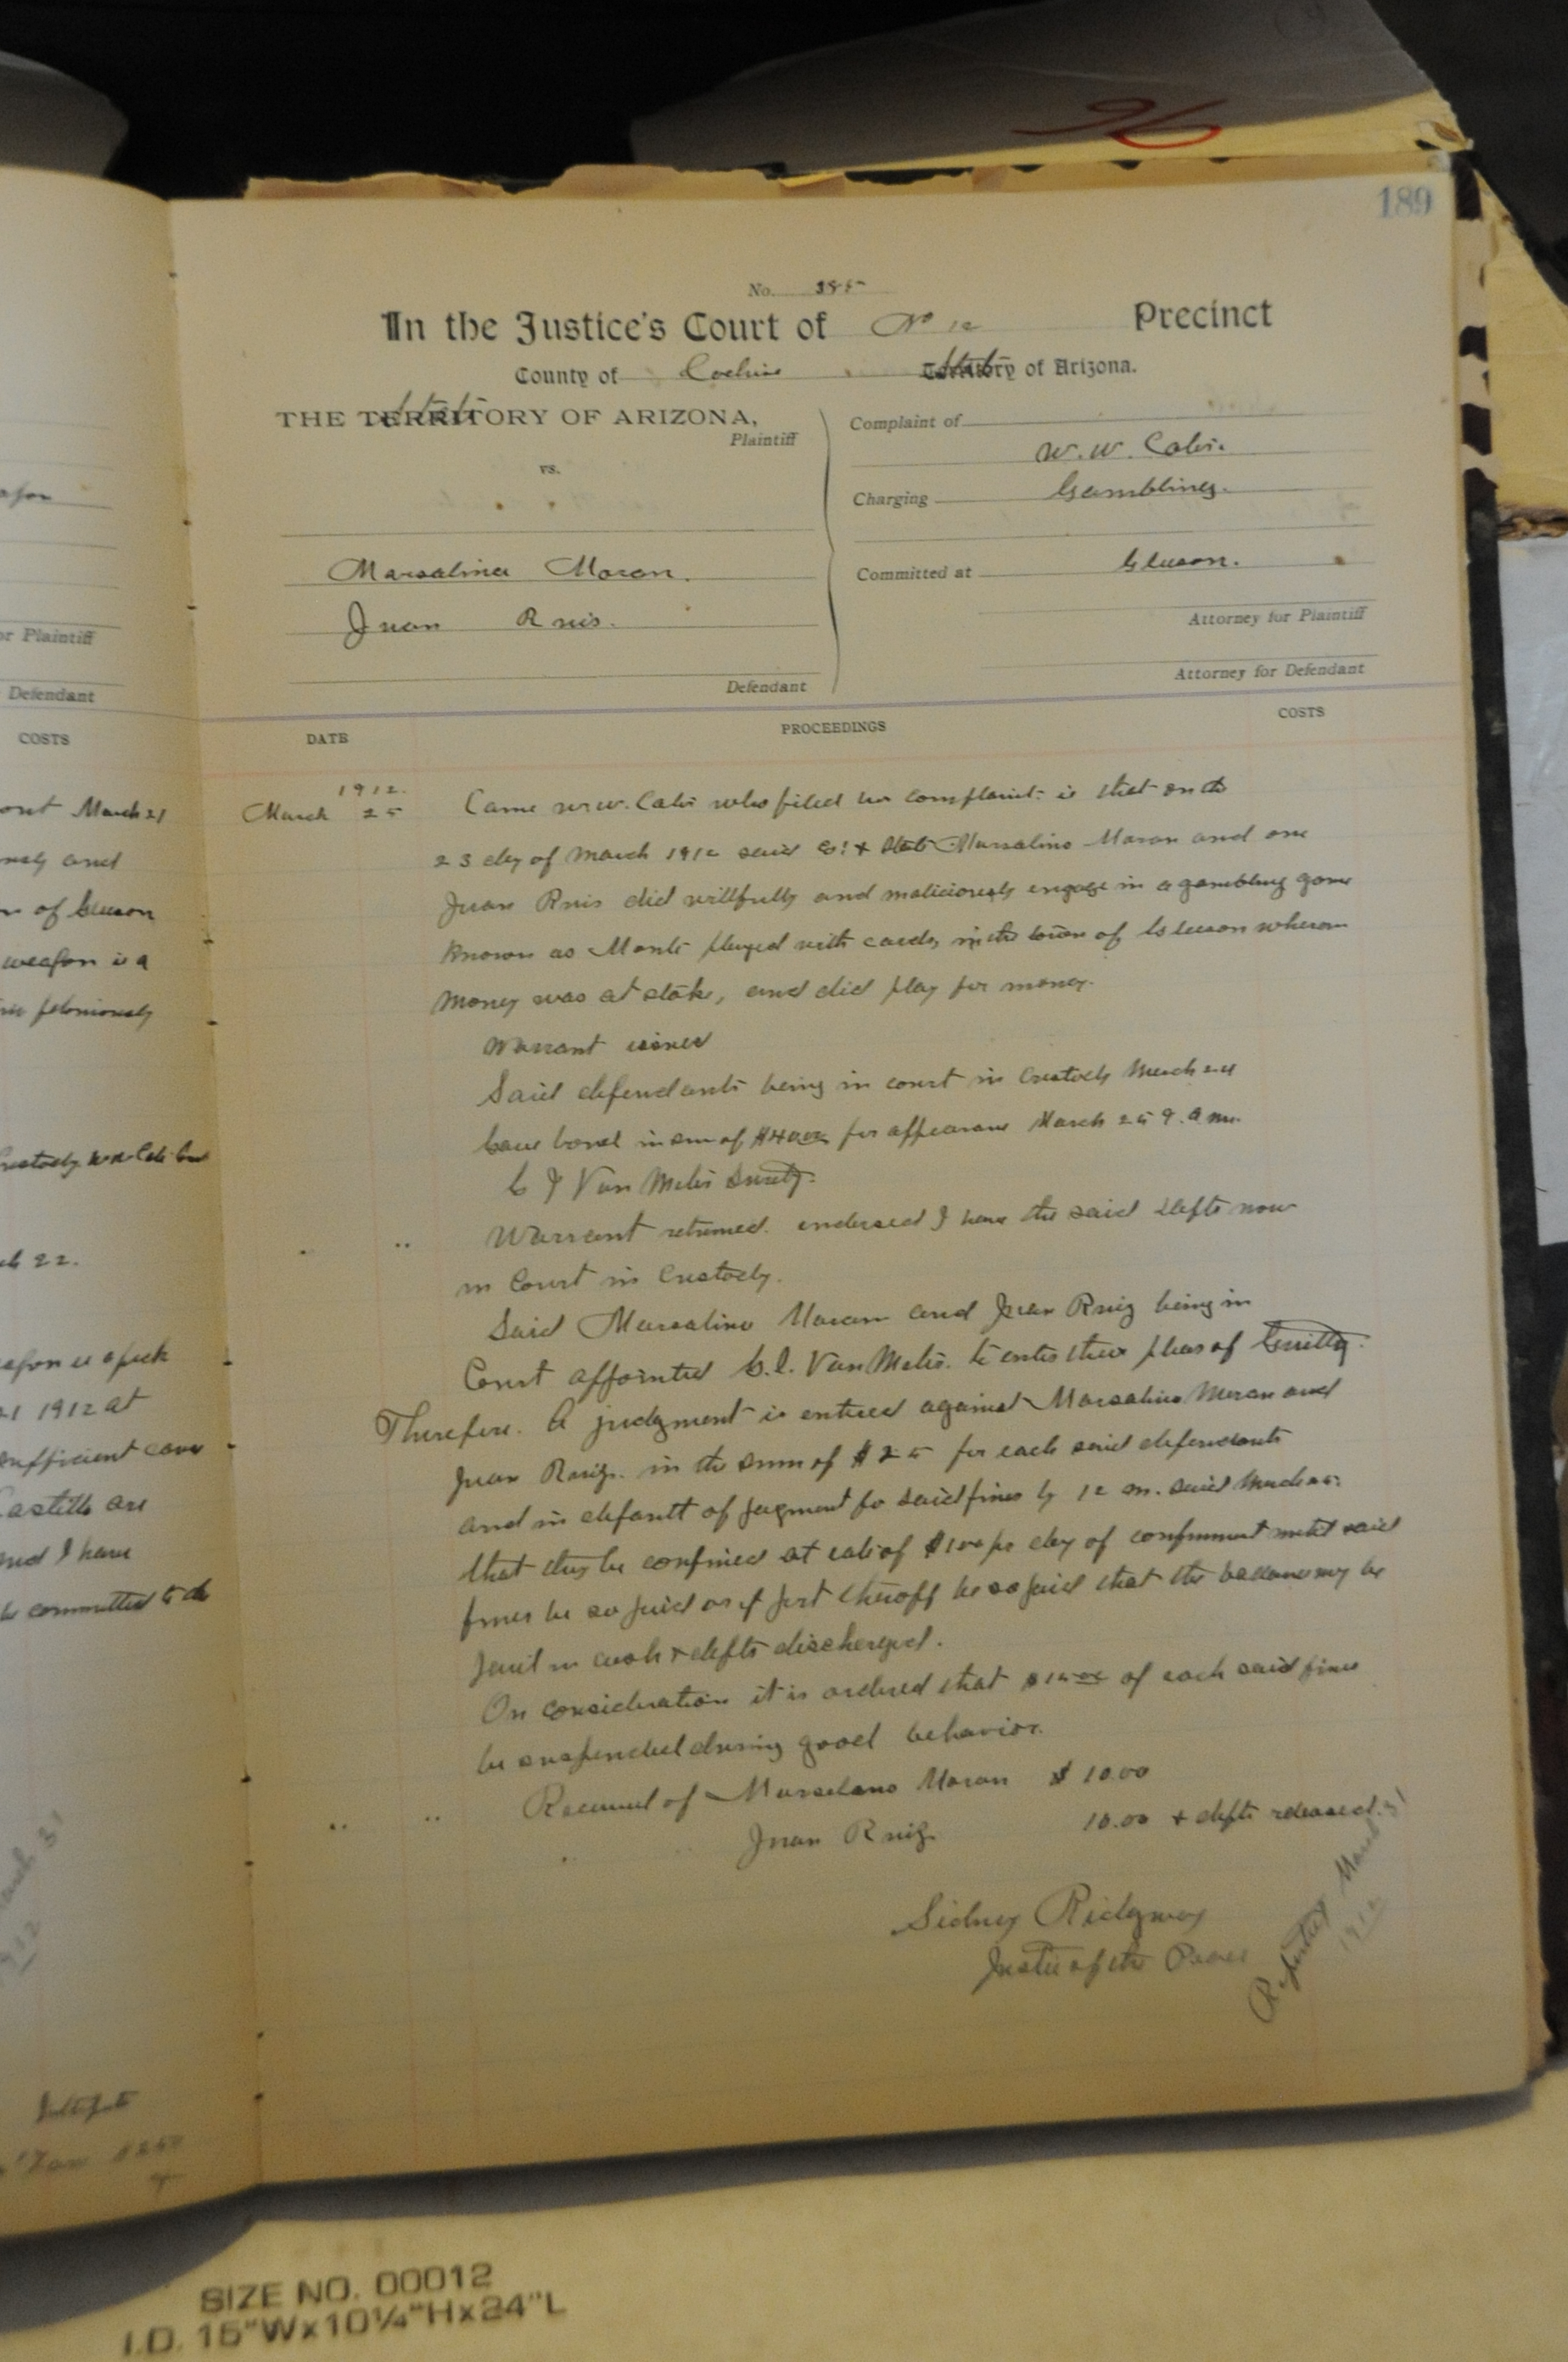 96
189
No. 385
In the Justice's Court of No 12 Precinct
County of Cochise State Territory of Arizona.
State
THE TERRITORY OF ARIZONA,
Plaintiff
vs.
Marsalino Moran.
Juan Ruis.
Defendant
Complaint of
W. W. Cates.
Charging Gambling.
Committed at Gleeson.
Attorney for Plaintiff
Attorney for Defendant
DATE PROCEEDINGS COSTS
1912.
March 25 Came W.W. Cates who filed his complaint: is that on the
23 day of March 1912 said Co. & State Marsalino Moran and one
Juan Ruis did willfully and maliciously engage in a gambling game
known as Monte played with cards, in the town of Gleeson wherein
money was at stake, and did play for money.
Warrant issued
Said defendants being in court in Custody March 24
Gave bond in sum of $40.00 for appearance March 25 9. a m.
C I Van Meter Surety.
" Warrant returned. endorsed I have the said defts now
in Court in Custody.
Said Marsalino Moran and Juan Ruiz being in
Court appointed C.I. Van Meter. to enter their pleas of Guilty.
Therefore. A judgment is entered against Marsalino Moran and
Juan Ruiz. in the sum of $25 for each said defendants
and in default of payment fo said fines by 12 m. said March 25.
that they be confined at rate of $1.00 per day of confinement until said
fines be so paid or if part thereoff be so paid that the balance may be
paid in cash & defts discharged.
On consideration it is ordered that $15.00 of each said fines
be suspended during good behavior.
" " Received of Marselano Moran $10.00
Juan Ruiz 10.00 & defts released.
Sidney Ridgway
Justice of the Peace
Reported March 31
1912
or Plaintiff
Defendant
COSTS
March 21
and
of Gleeson
weapon is a
feloniously
22.
1912 at
sufficient cause
and I have
be committed to
SIZE NO. 00012
I.D. 15"Wx10¼"Hx24"L